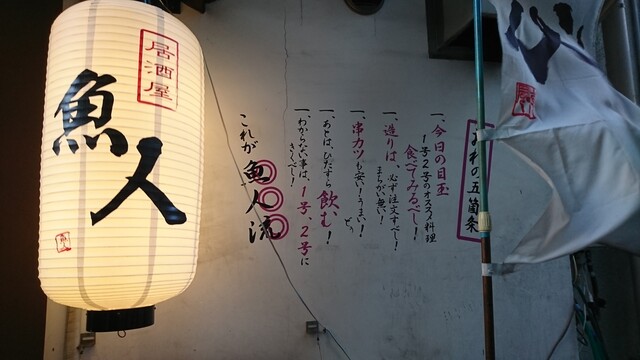 居酒屋
魚人
われの五箇条
一、今日の目玉
1号2号のオススメ料理
食べてみるべし!
一、造りは、必ず注文すべし!
まちがい無い!
一、串カツも安い!うまい!
一、あとは、ひたすら飲む!
一、わからない事は、1号、2号に
きくべし!
これが魚人流